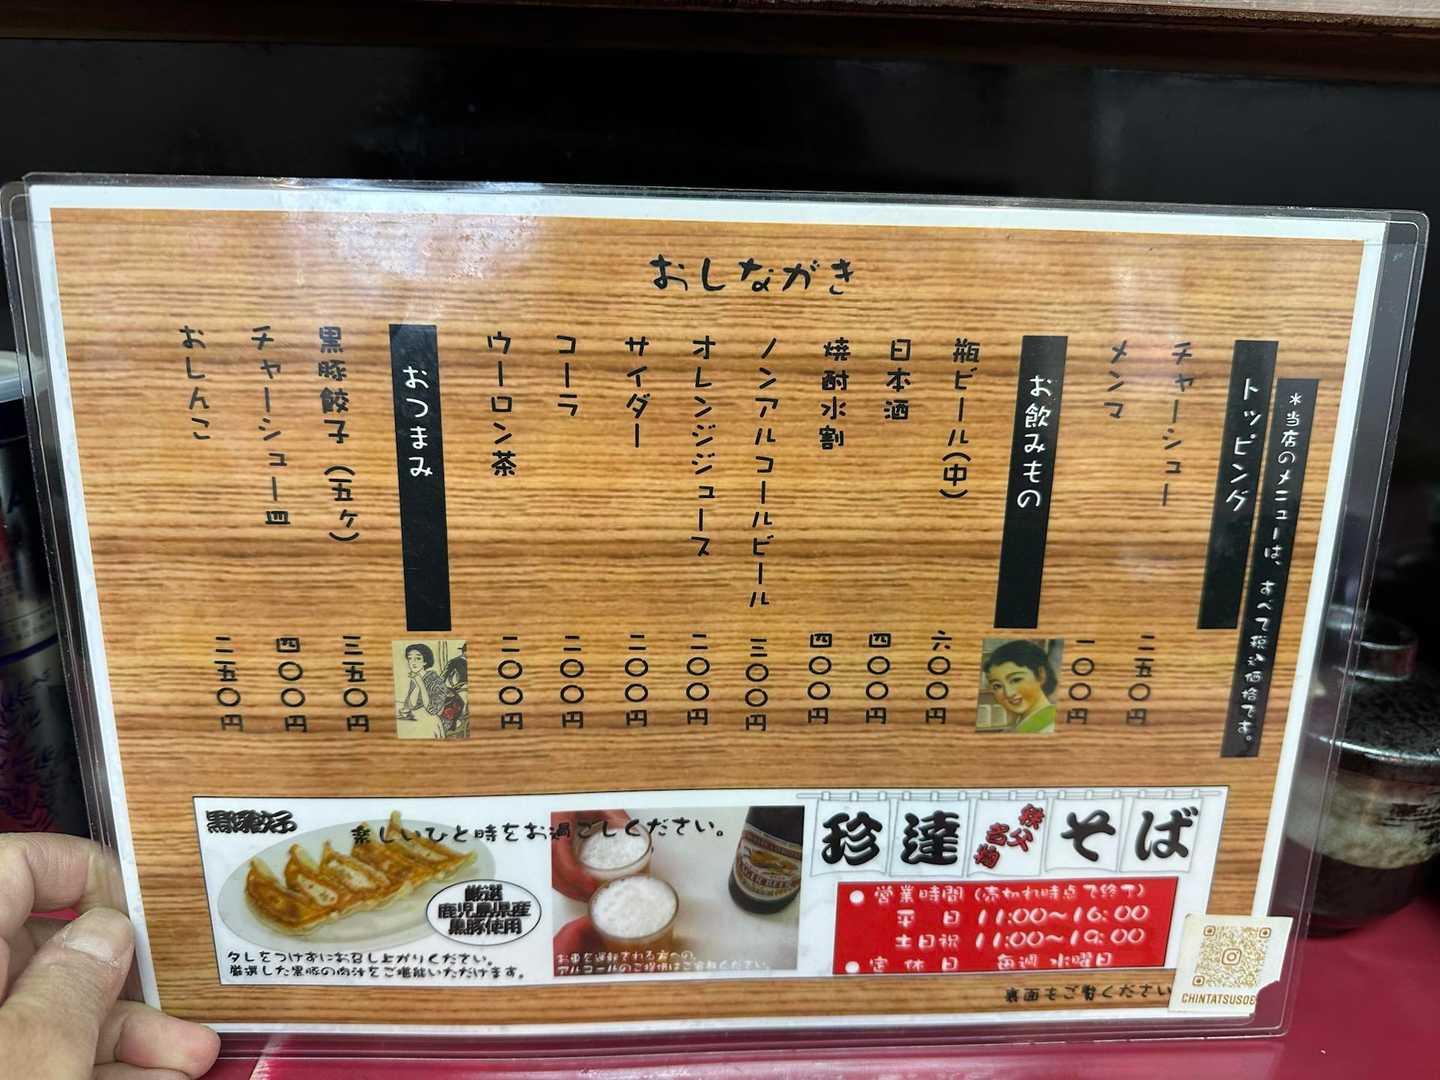 おしながき
＊当店のメニューは、すべて税込価格です。
トッピング
チャーシュー 二五〇円
メンマ 一〇〇円
お飲みもの
瓶ビール(中) 六〇〇円
日本酒 四〇〇円
焼酎水割 四〇〇円
ノンアルコールビール 三〇〇円
オレンジジュース 二〇〇円
サイダー 二〇〇円
コーラ 二〇〇円
ウーロン茶 二〇〇円
おつまみ
黒豚餃子(五ヶ) 三五〇円
チャーシュー皿 四〇〇円
おしんこ 二五〇円
黒豚餃子
楽しいひと時をお過ごしください。
厳選
鹿児島県産
黒豚使用
タレをつけずにお召し上がりください。
厳選した黒豚の肉汁をご堪能いただけます。
お車を運転される方への、
アルコールのご提供はご容赦ください。
珍達そば
秩父
名物
●営業時間(売切れ時点で終了)
平 日 11:00〜16:00
土日祝 11:00〜19:00
●定休日 毎週 水曜日
裏面もご覧ください
CHINTATSUSOB